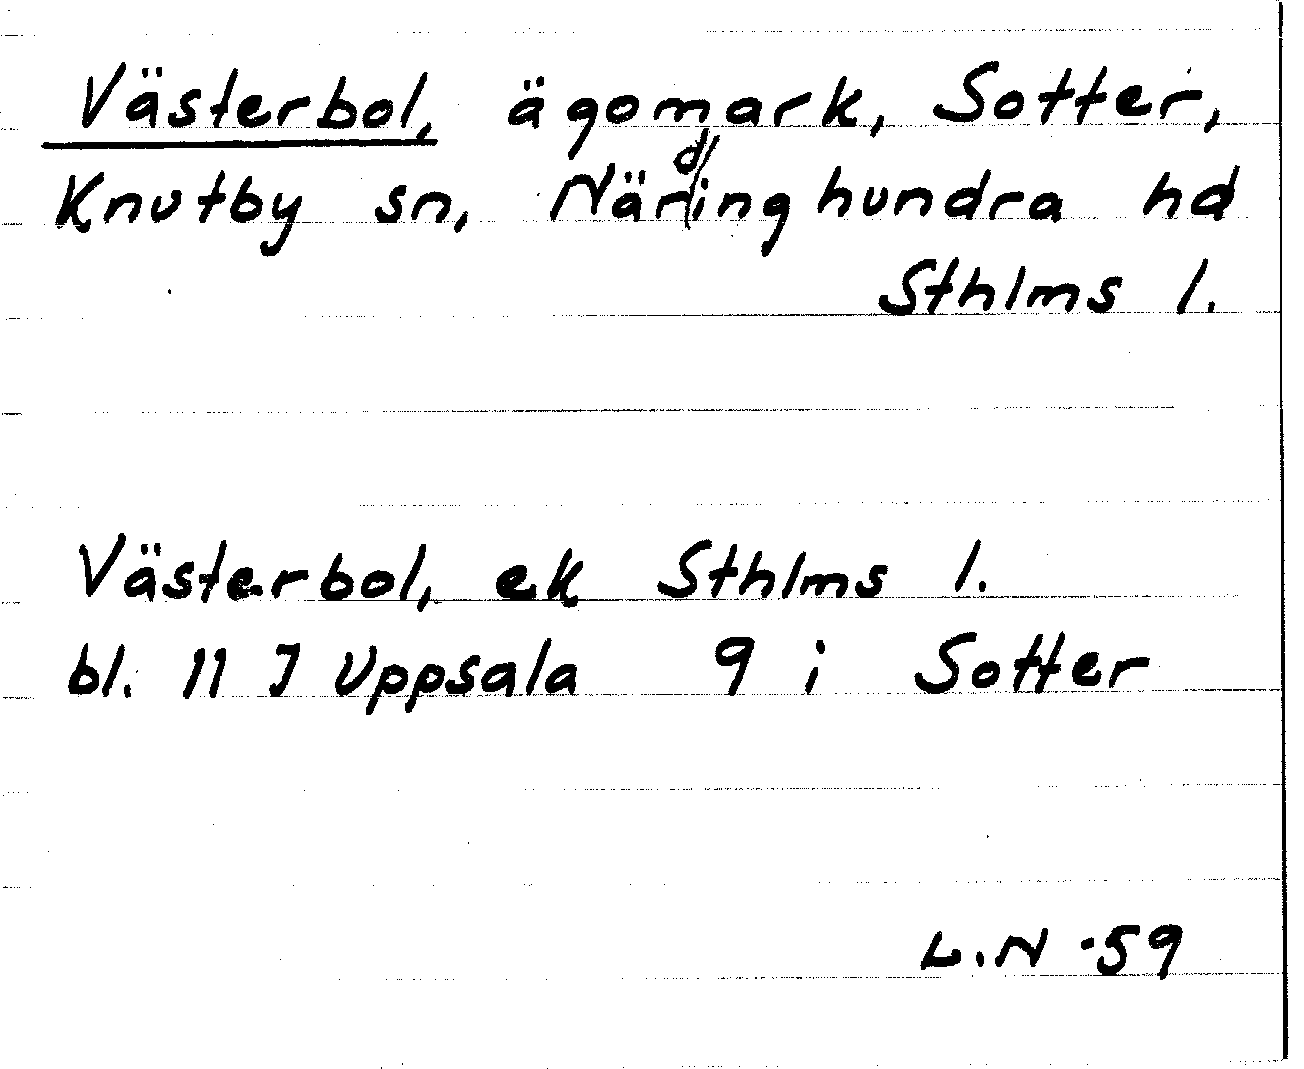 Västerbol, ägomark, Sotter,
Knutby sn, Närdinghundra hd
Sthlms l.
Västerbol, ek Sthlms l.
bl. 11 J Uppsala 9 i Sotter
L.N -59